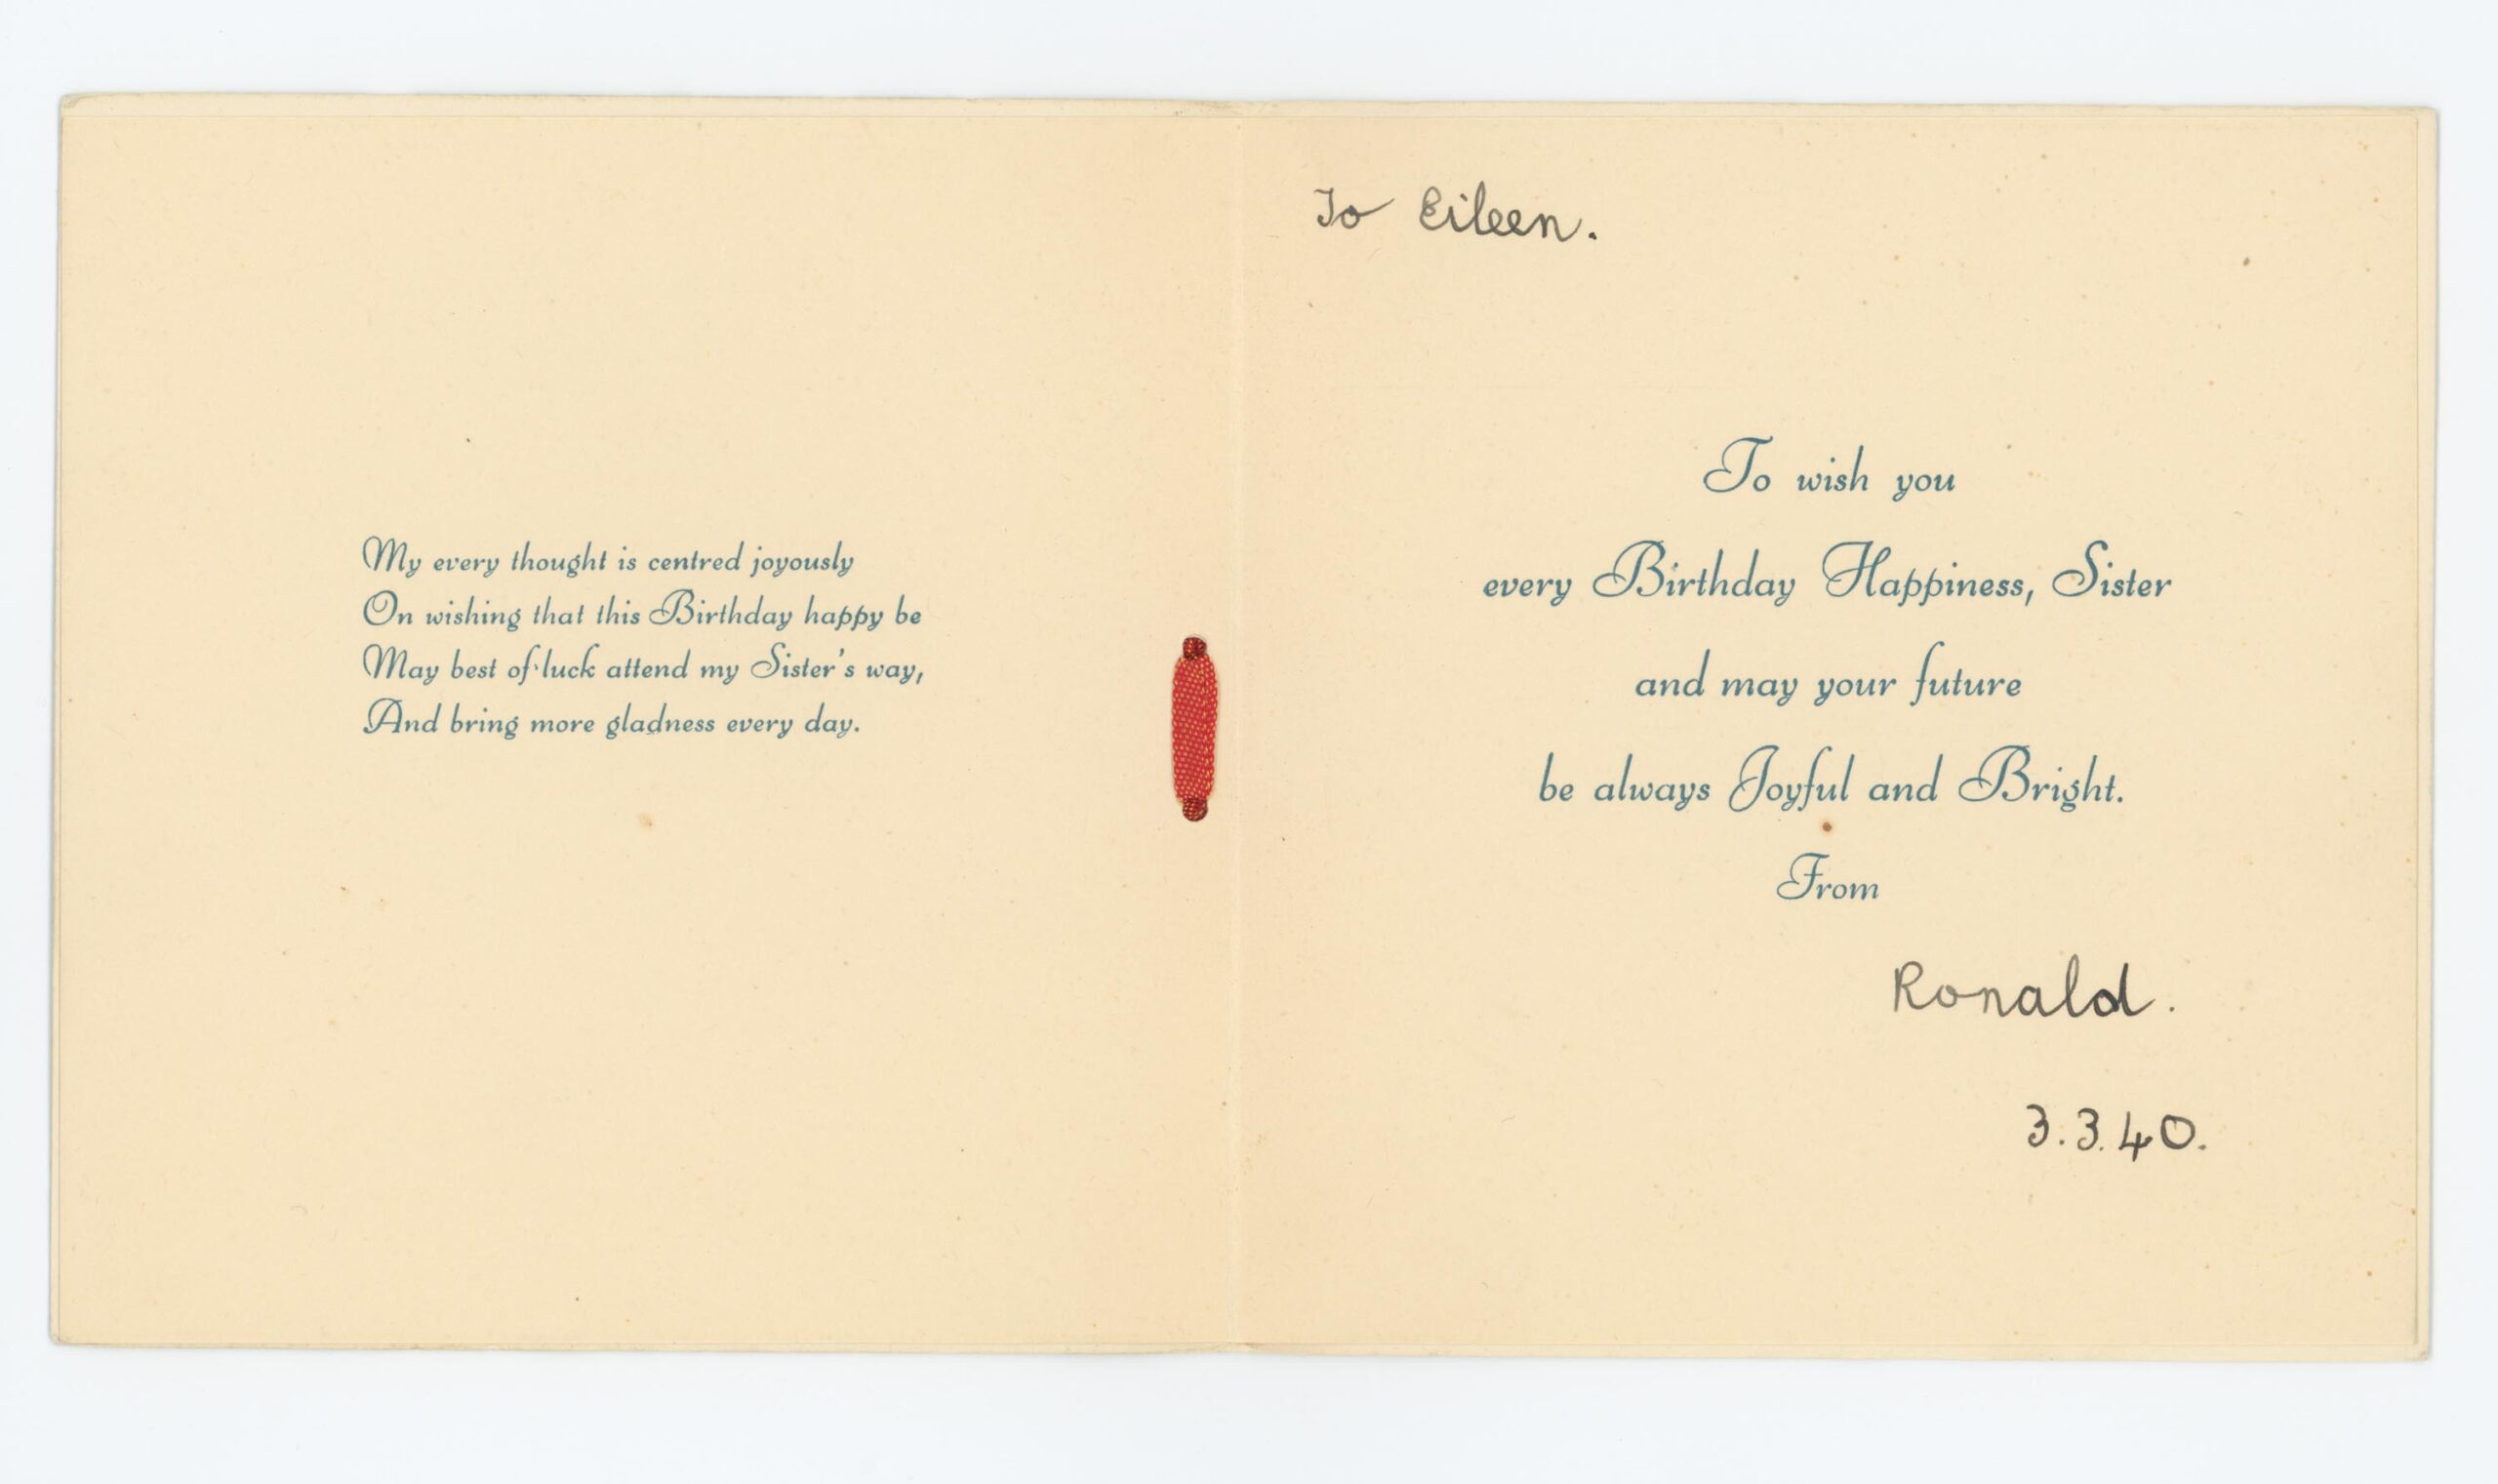 My every thought is centred joyously
On wishing that this Birthday happy be
May best of luck attend my Sister's way,
And bring more gladness every day.
To Eileen.
To wish you
every Birthday Happiness, Sister
and may your future
be always Joyful and Bright.
From
Ronald.
3.3.40.